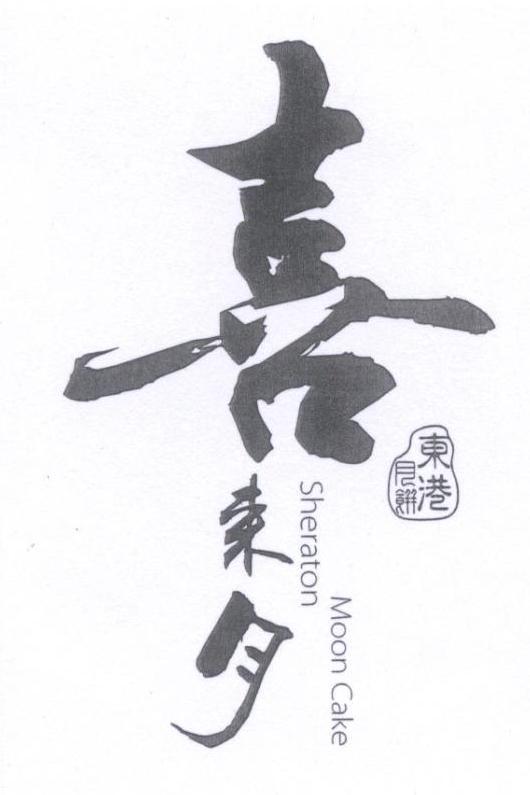 喜東月
Sheraton
Moon Cake
東港
月餅